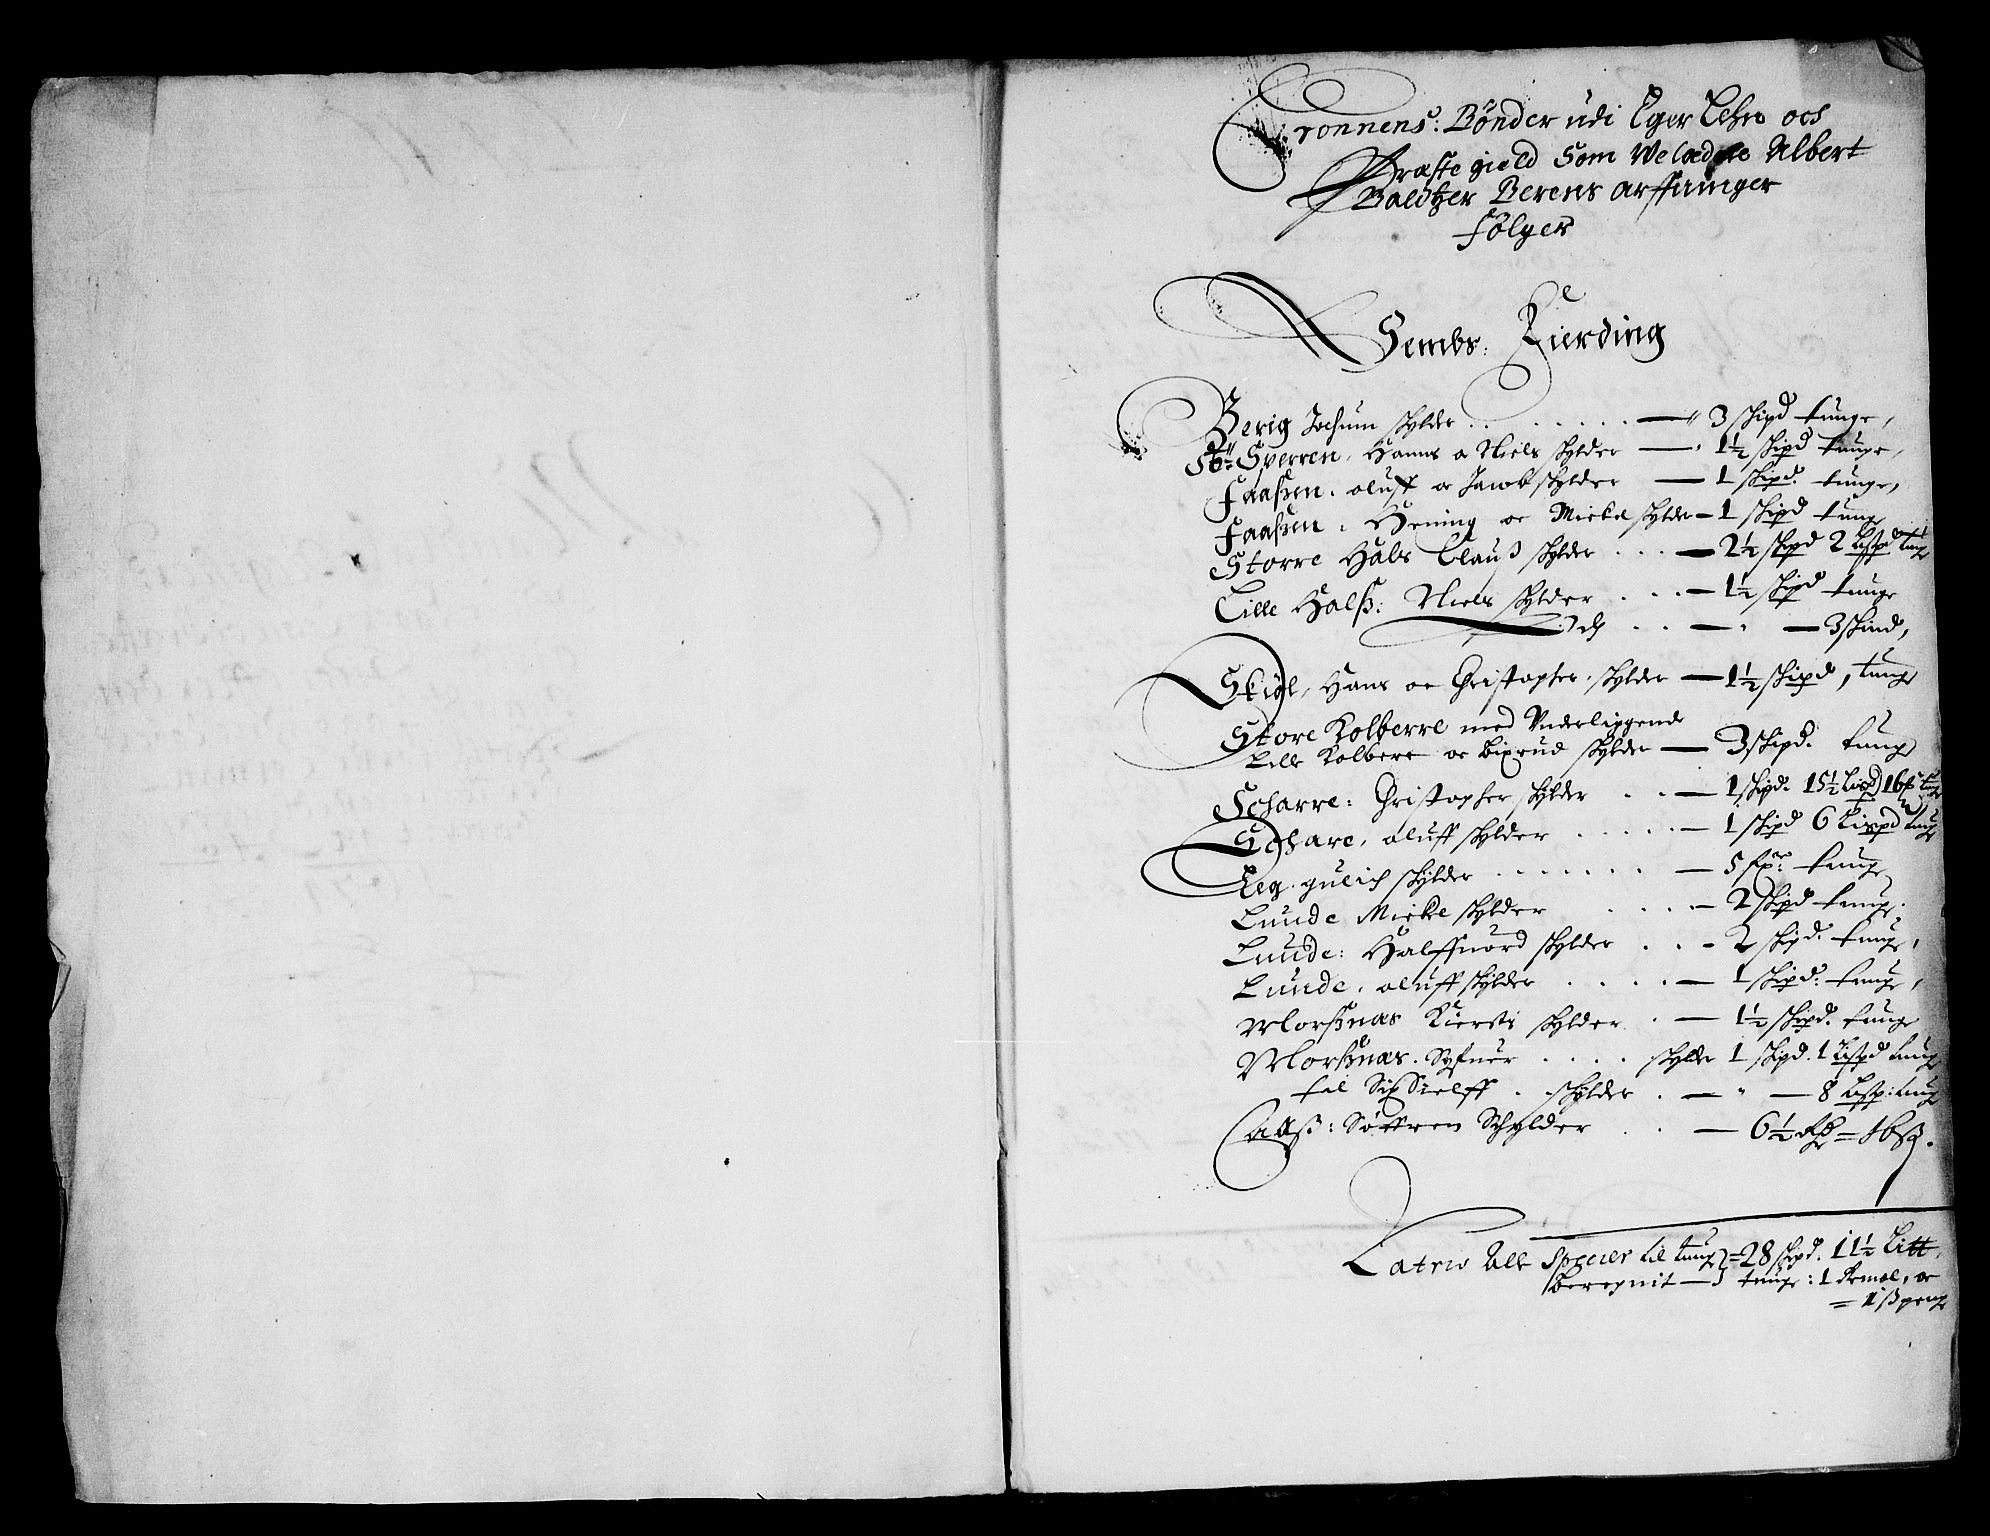 Cronnens: Bønder udi Eger Lehn och
Præste gield Som Welædle Albert
Baltzer Berens arffuinger
følger
Sembs: Fierding
Berig Jochum schylder . . . . . . . — 3 schipd tunge,
St: Sperren, Hanns o Niels schylder — 1½ schipd tunge,
Faaßen. oluff oc Jacob schylder — 1 schipd. tunge,
Faaßen. Hening oc Mickel schylder — 1 schipd tunge
Storre Hals Clauß schylder . . . — 2½ schipd 2 Lispd tunge
Lille Halß: Niels schylder . . . — 1½ schipd tunge
. . — — 3 skind,
Skiøl, Hans oc Christopher schylder — 1½ schipd, tunge
Store Kolberre med Vnderliggende
Lille Kolbere oc Bixrud schylder — 3 schipd. tunge
Scharre: Christopher schylder . . — 1 schipd. 15½ Lispd 16
Schare, oluff schylder . . . . . — 1 schipd 6 Lispd tunge
gulich schylder . . . . . . . — 5 tunge
Lunde Mickel schylder . . . — 2 schipd tunge.
Lunde: Halffuord schylder . . . — 2 schipd. tunge,
Lunde, oluff schylder . . . . — 1 schipd: tunge,
Morßnæs Kiersti schylder . — 1½ schipd. tunge
Morßnæs. . . . . schylder 1 schipd. 1 Lispd tunge
til Sielff . schylder . — — 8 Lisp: tunge
Aaß: Søffren Schylder . . — 6½
Latris Alle Specier til tunge = 28 schipd. 11½ Litt.
beregnit — tunge: 1 oc
= 1 ß penge